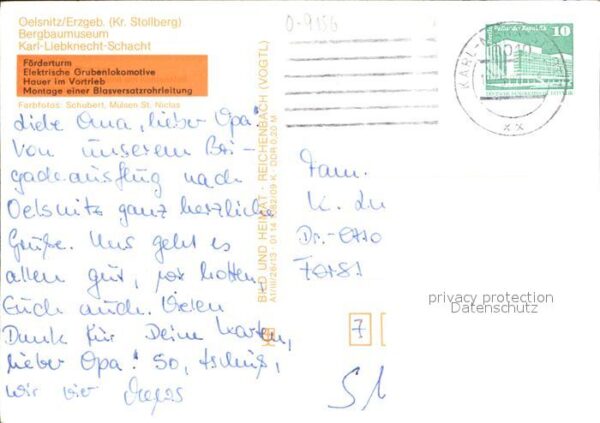 Oelsnitz/Erzgeb. (Kr. Stollberg)
Bergbaumuseum
Karl-Liebknecht-Schacht
Förderturm
Elektrische Grubenlokomotive
Hauer im Vortrieb
Montage einer Blasversatzrohrleitung
Farbfotos: Schubert, Mülsen St. Niclas
0-9156
Liebe Oma, lieber Opa!
Von unserem Bri-
gadeausflug nach
Oelsnitz ganz herzliche
Grüße. Uns geht es
allen gut, wir hoffen
Euch auch. Vielen
Dank für Deine Karten,
lieber Opa! So, tschüß,
wir vier
BILD UND HEIMAT · REICHENBACH (VOGTL)
K · DDR 0,20 M
10
KARL-M
Fam.
K.
Dr.-Otto
7
privacy protection
Datenschutz